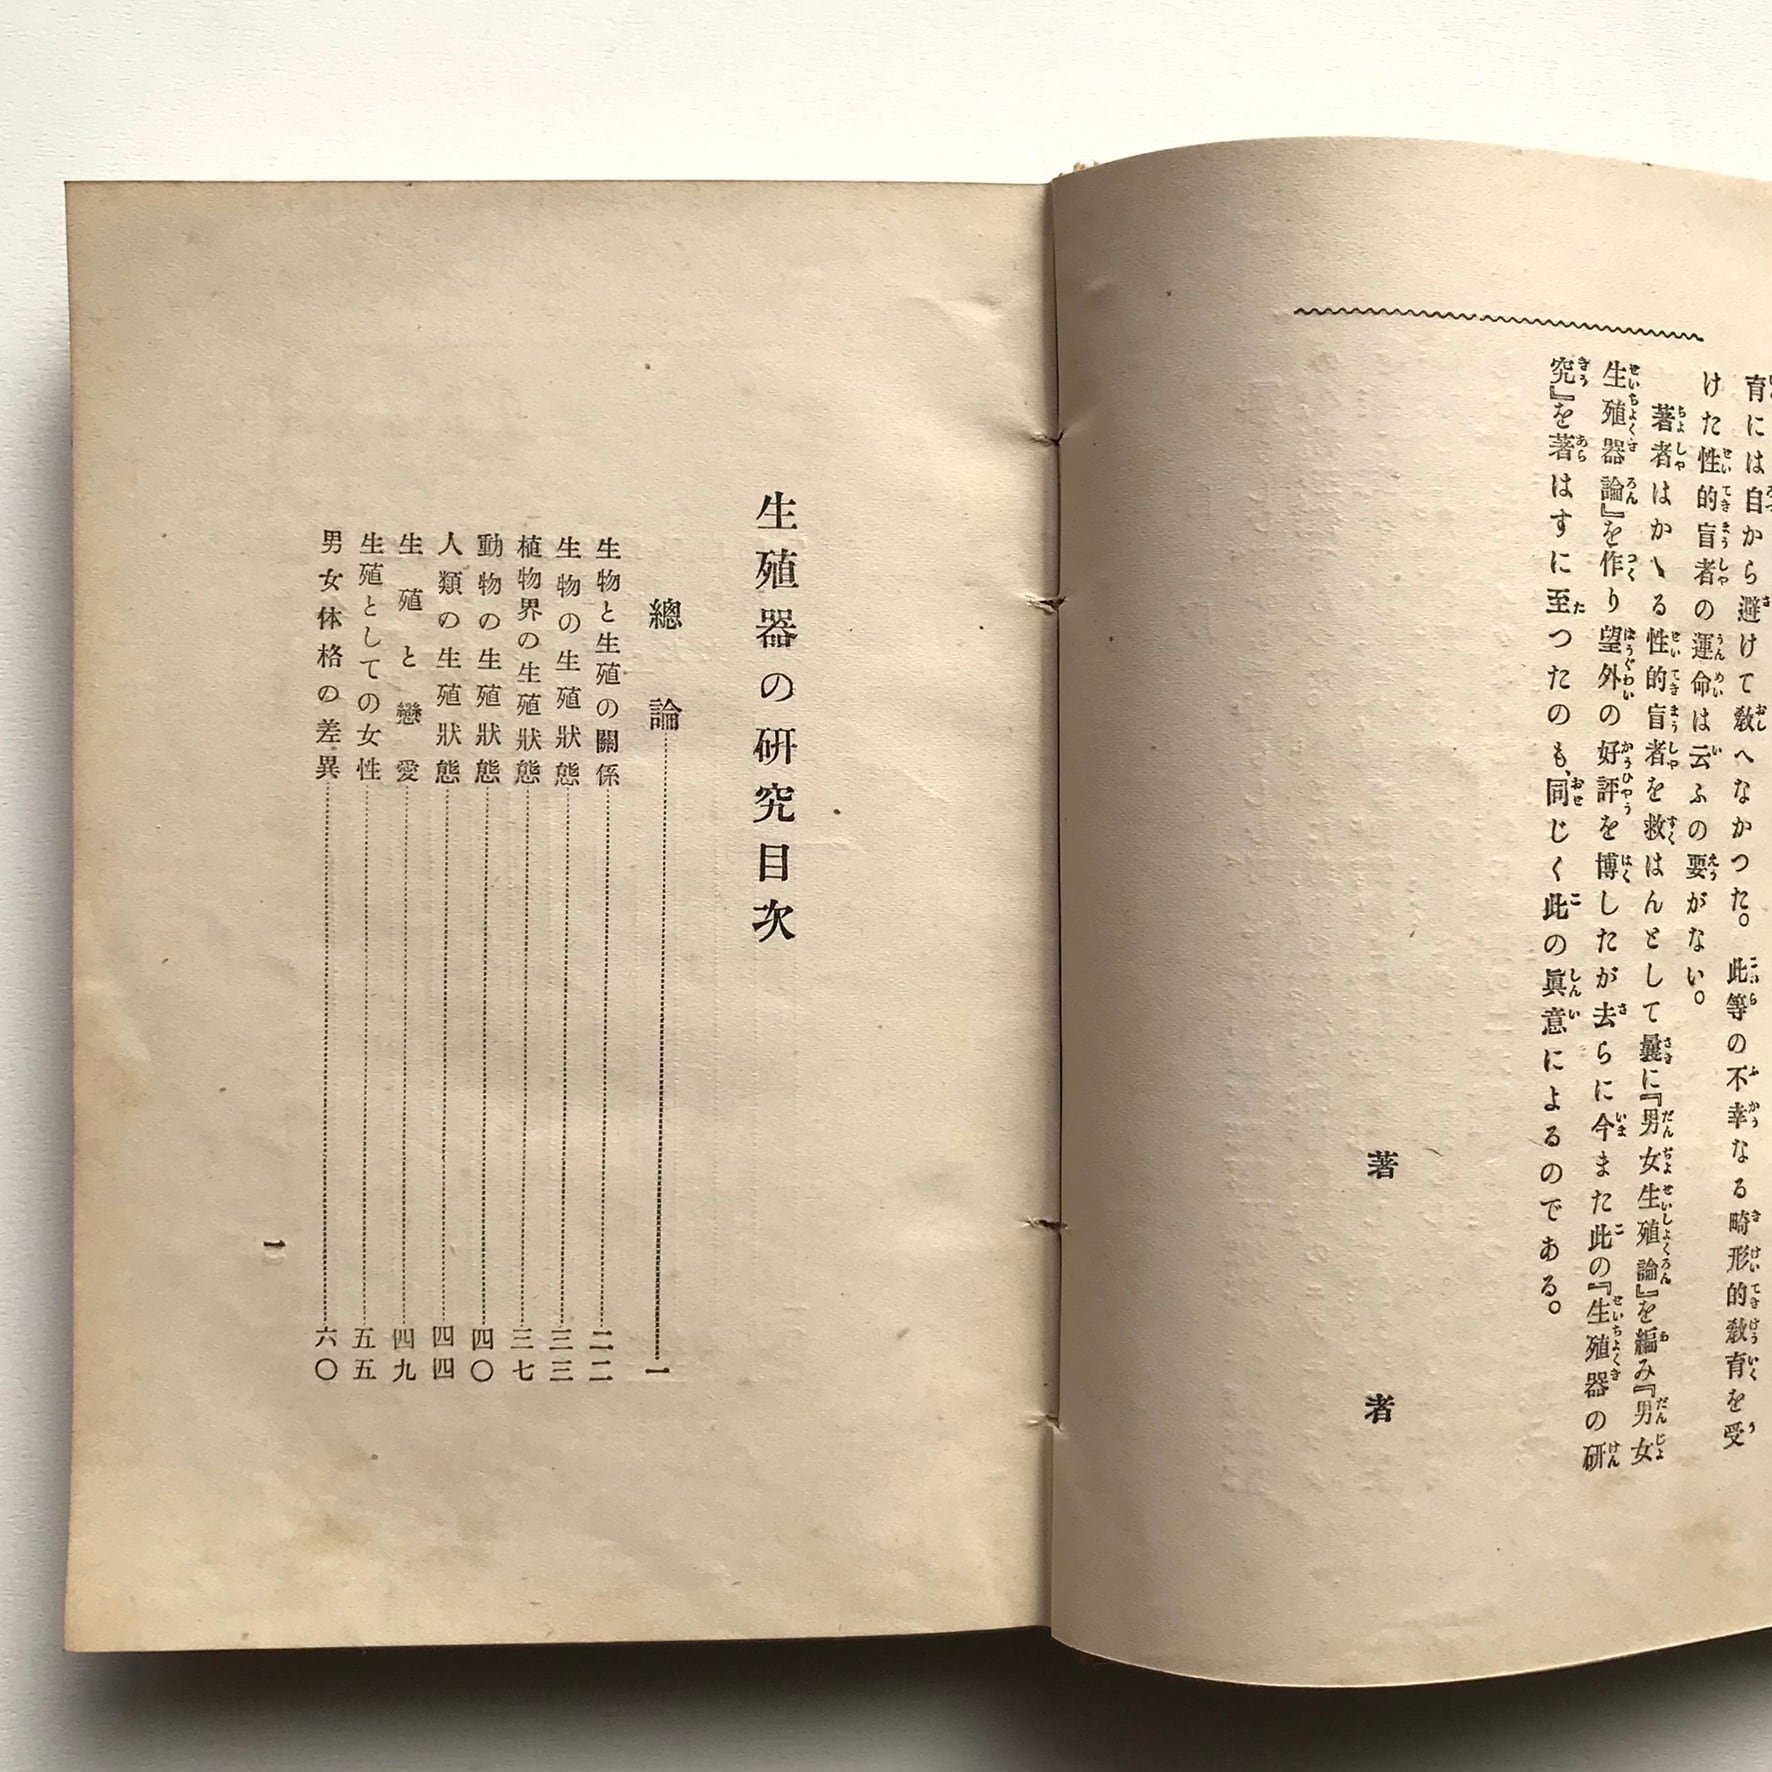 育には自から避けて敎へなかつた。此等の不幸なる畸形的敎育を受
けた性的盲者の運命は云ふの要がない。
著者はかゝる性的盲者を救はんとして曩に『男女生殖論』を編み『男女
生殖器論』を作り望外の好評を博したが去らに今また此の『生殖器の研
究』を著はすに至つたのも、同じく此の眞意によるのである。
著者
生殖器の硏究目次
總論………一
生物と生殖の關係………二二
生物の生殖狀態………三三
植物界の生殖狀態………三七
動物の生殖狀態………四〇
人類の生殖狀態………四四
生殖と戀愛………四九
生殖としての女性………五五
男女体格の差異………六〇
一